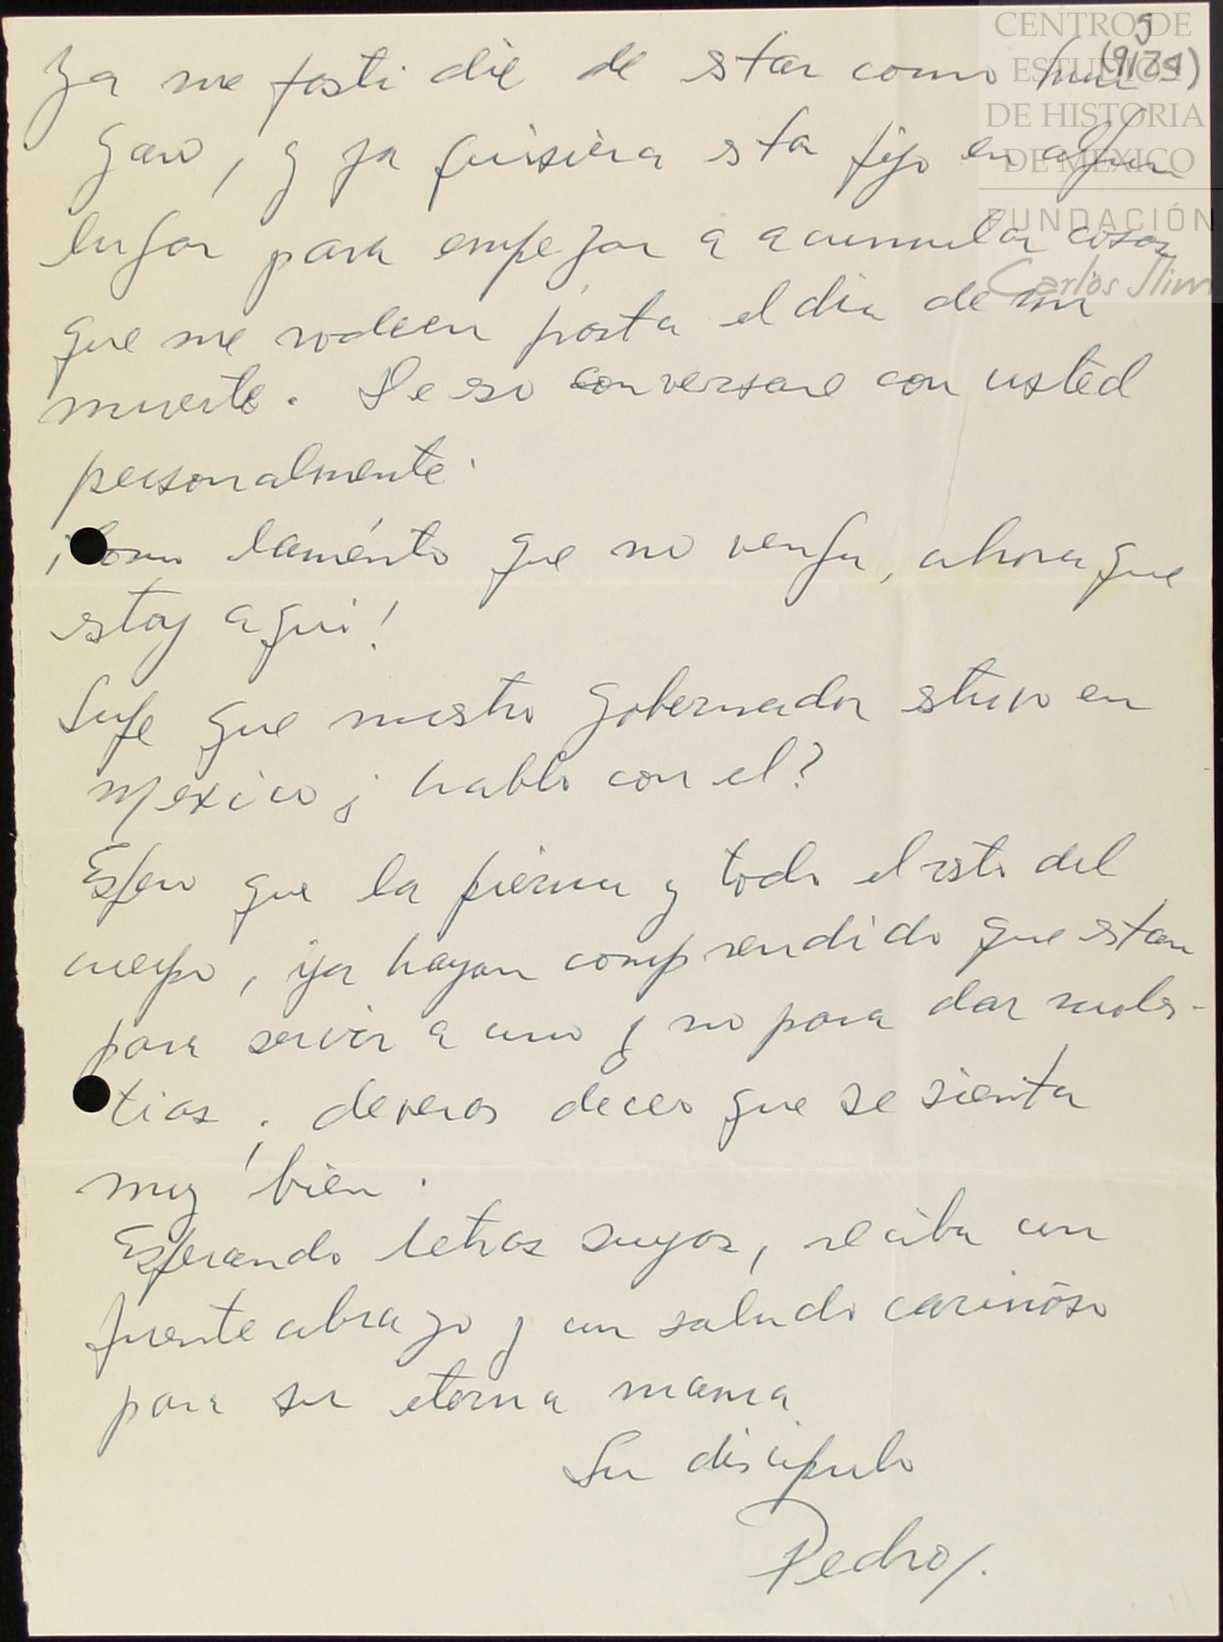 5
(9174)
CENTRO DE
ESTUDIOS
DE HISTORIA
DE MÉXICO
FUNDACIÓN
Carlos Slim
Ya me fastidie de star como hun
garo, y ya quisiera sta fijo en algun
lugar para empezar a acumular cosas
que me rodeen hasta el dia de mi
muerte. De eso conversare con usted
personalmente.
¡Como lamento que no venga, ahora que
estoy aqui!
Supe que nuestro gobernador stuvo en
Mexico ¿ hablo con el?
Espero que la pierna y todo el resto del
cuerpo, ya hayan comprendido que estan
para servir a uno y no para dar moles-
tias; deveras deceo que se sienta
muy bien.
Esperando letras suyas, reciba un
fuerte abrazo y un saludo cariñoso
para su eterna mama
Su discipulo
Pedro/.